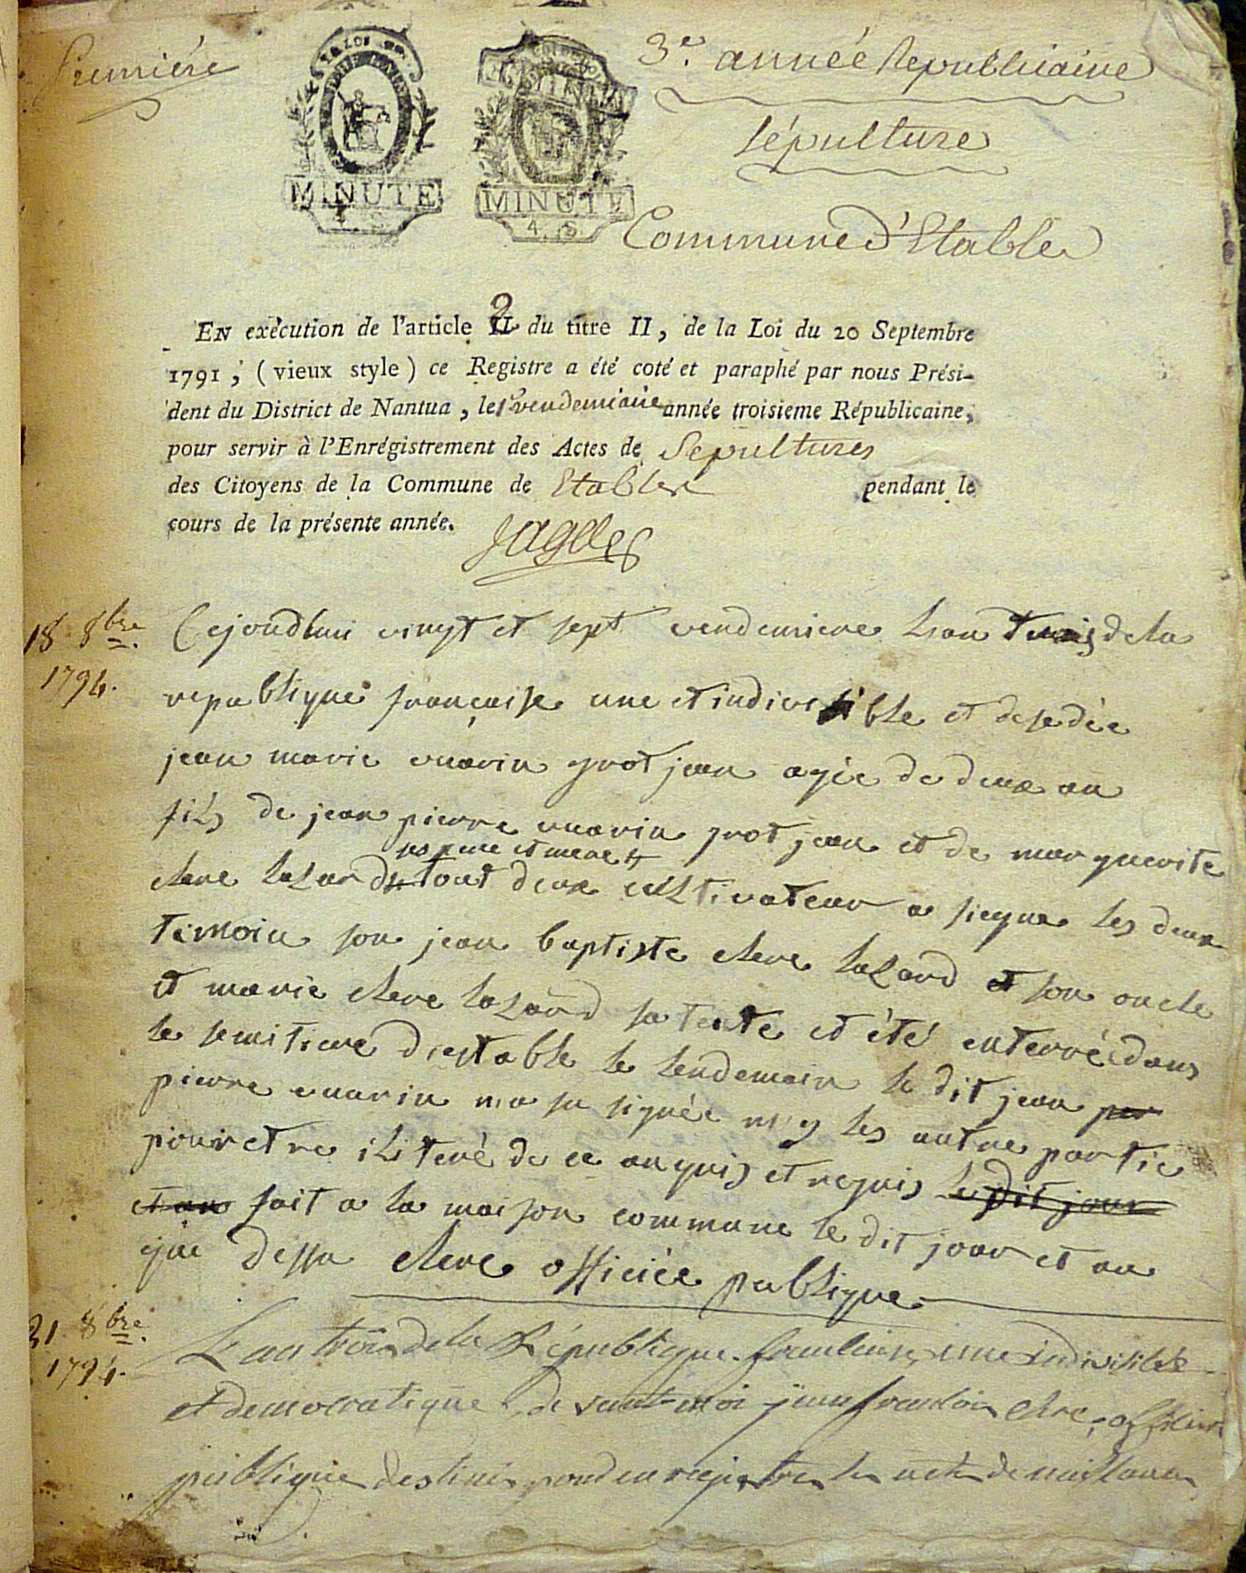 Premiére
3e. année Republicaine
sépulture
Commune d'Etable
MINUTE
MINUTE
4. S
EN exécution de l'article 2 du titre II, de la Loi du 20 Septembre
1791, (vieux style) ce Registre a été coté et paraphé par nous Prési-
dent du District de Nantua, le 1er vendemiaire année troisieme Républicaine,
pour servir à l'Enrégistrement des Actes de Sepultures
des Citoyens de la Commune de Etable pendant le
cours de la présente année.
18 8bre
1794.
Cejourdhui vingt et sept vendemiere lan trois de la
republique françaisse une et indivisible et desedée
jean marie cuarin grosjean agée de deux an
fils de jean pierre cuarin grosjean et de marguerite
clere lalard tout deux cultivateur a siegna les deux
ns pere et mere
temoin son jean baptiste clere lalard et son oncle
et marie clere lalard sa tente et été enterré dans
le semitiere diestable le lendemain le dit jean
pierre cuarin na su signée ny les autre partie
pour etre iliteré de ce anquis et requis le dit jour
et an fait a la maison commune le dit jour et an
que dessu clere officiée publique
31 8bre
1794.
L'an trois de la République francaise une indivisible
et democratique de vant moi jean francois clere, officier
publique destiné pour enregistrer les actes de naissance